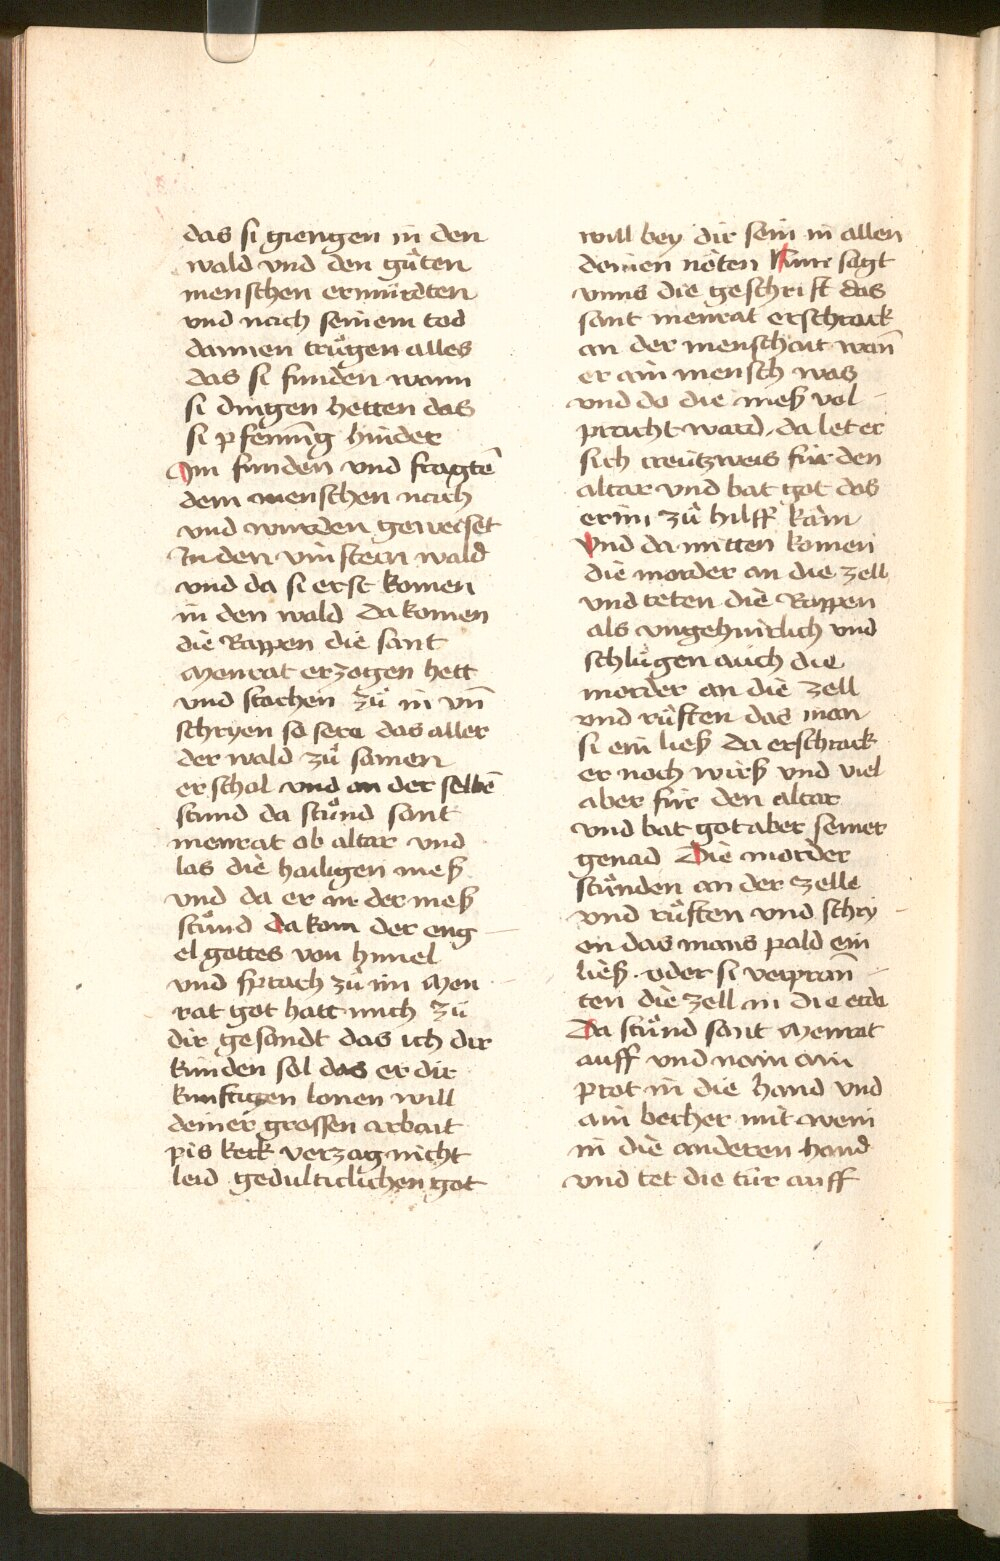 das si giengen in den
wald vnd den gůten
menschen ermürdten
vnd nach seinem tod
dannen trůgen alles
das si funden wann
si dingen hetten das
si pfenning hinder
Im funden vnd fragtē
dem menschen nach
vnd wurden geweiset
In den vinstern wald
vnd da si erst komen
in den wald da komen
die Rappen die sant
Menrat erzogen hett
vnd stachen zů in vn̄
schryen so sere das aller
der wald zů samen
erschol vnd an der selbē
stund da stůnd sant
menrat ob altar vnd
las die hailigen meß
vnd da er in der meß
stůnd da kom der eng
el gottes von himel
vnd sprach zů im Men
rat got hatt mich zů
dir gesandt das ich dir
künden sol das er dir
kunftigen lonen will
deiner grossen arbait
pis keck verzag nicht
leid gedulticlichen got
will bey dir sein in allen
deinen nöten Nun sagt
vnns die geschrift das
sant meinrat erschrack
an der menschait wan̄
er ain mensch was
vnd do die meß vol
pracht ward da let er
sich creützweis für den
altar vnd bat got das
er im zů hilff käm
Vnd da mitten komen
die morder an die zell
vnd teten die Rappen
als vngehiurlich vnd
schlůgen auch die
morder an die zell
vnd růften das man
si ein ließ Da erschrack
er noch wirß vnd viel
aber für den altar
vnd bat got aber seiner
genad Die morder
stůnden an der zelle
vnd růften vnd schry
en das mans pald ein
ließ oder si verpran̄
ten die zell in die erde
Da stůnd sant Menrat
auff vnd nam ain
prot in die hand vnd
ain becher mit wein
in die anderen hand
vnd tet die tür auff